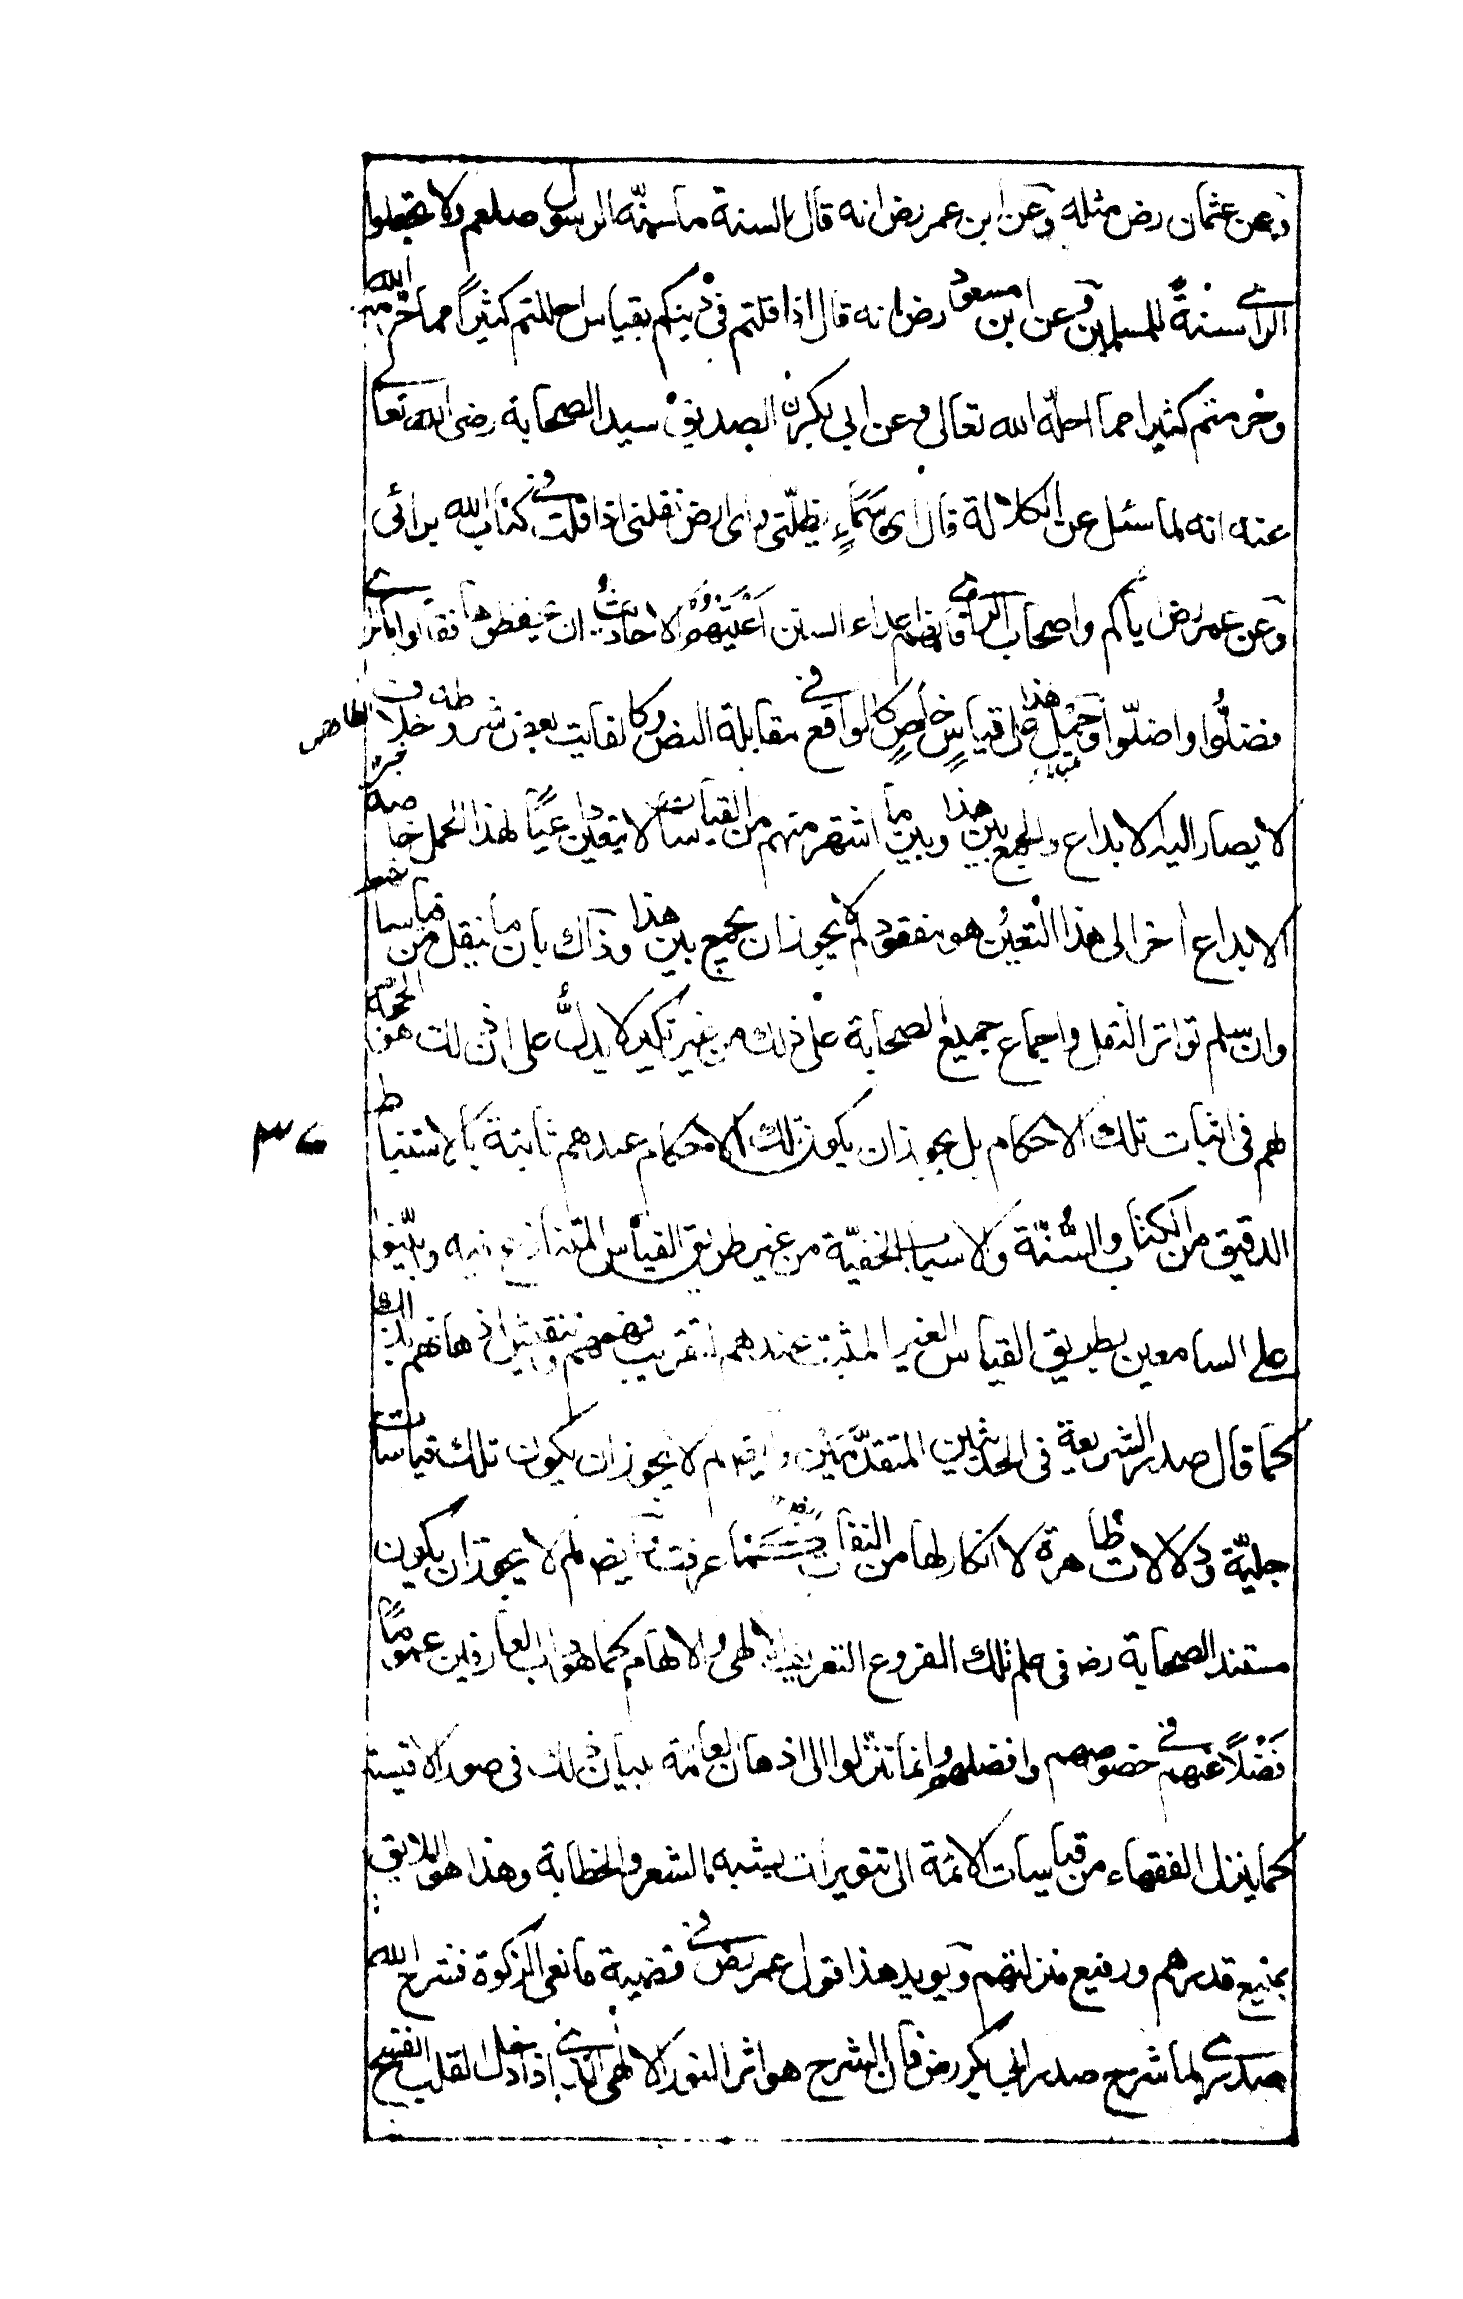 وعن عثمان رض مثله وعن ابن عمر رض انه قال السنة ما سنّه الرسول صلعم ولا تجعلوا
الراى سنة للمسلمين وعن ابن مسعود رض انه قال اذا قلتم فى دينكم بقياس احللتم كثيرًا مما حرّم الله
وحرمتم كثيرا مما احلّه الله تعالى وعن ابى بكر ن الصديق سيد الصحابة رضى الله تعالى
عنه انه لما سئل عن الكلالة قال اى سَمَاءٍ يظلّنى واى ارض تقلنى اذا قلت فى كتاب الله برائى
وعن عمر رض اياكم واصحاب الراى فانهم اعداء السنن اَعْيَتْهُمُ الاحاديثُ ان يحفظوها فقالوا بالراى
فضلُّوا واضلّوا وحمل هذا على قياسٍ خاصٍ كالواقع فى مقابلة النص وكالفايت بعض شروطه خلاف الظاهر
لا يصار اليه الا بداع والجمع بين هذا وبين ما اشتهر منهم من القياسات لا يتعين داعيًا لهذا الحمل خاصة
الا بداع اخر الى هذا التعيّن هو مفقود لم لا يجوز ان يجمع بين هذا وذاك بان ما نقل من قياساتهم
وان سلم تواتر النقل واجماع جميع الصحابة على ذلك من غير نكير لا يدلُّ على ان ذلك هو الحجة
لهم فى اثبات تلك الاحكام بل يجوز ان يكون تلك الاحكام عندهم ثابتة بالاستنباط
الدقيق من الكتاب والسُّنّة والاسباب الخفيّة من غير طريق القياس المتنازع فيه
على السامعين بطريق القياس الغير المثبت عندهم لتقريب فهمهم اذهانهم بذلك
كما قال صدر الشريعة فى الحديثين المتقدّمَيْن وايضا لم لا يجوز ان يكون تلك قياسات
جليّة ودلالات ظاهرة لا انكار لها من كما عرفت وايضا لم لا يجوز ان يكون
مستند الصحابة رض فى علم تلك الفروع التعريف الالهى والالهام كما هو داب العارفين عمومًا
فَضْلًا عنهم فى خصوصهم وافضلهم وانما تنزّلوا الى اذهان العامّة ببيان ذلك فى صور الاقيسة
كما ينزل الفقهاء من قياسات الائمة الى تنويرات يشبه بالشعر والخطابة وهذا هو اللايق
بمنيع قدرهم ورفيع منزلتهم ويويد هذا قول عمر رض فى قضية مانعى الزكوة فشرح الله
صدرى لما شرح صدر ابى بكر رض فان الشرح هو اثر النور الالهى الذى اذا دخل القلب انفسح
٣٧